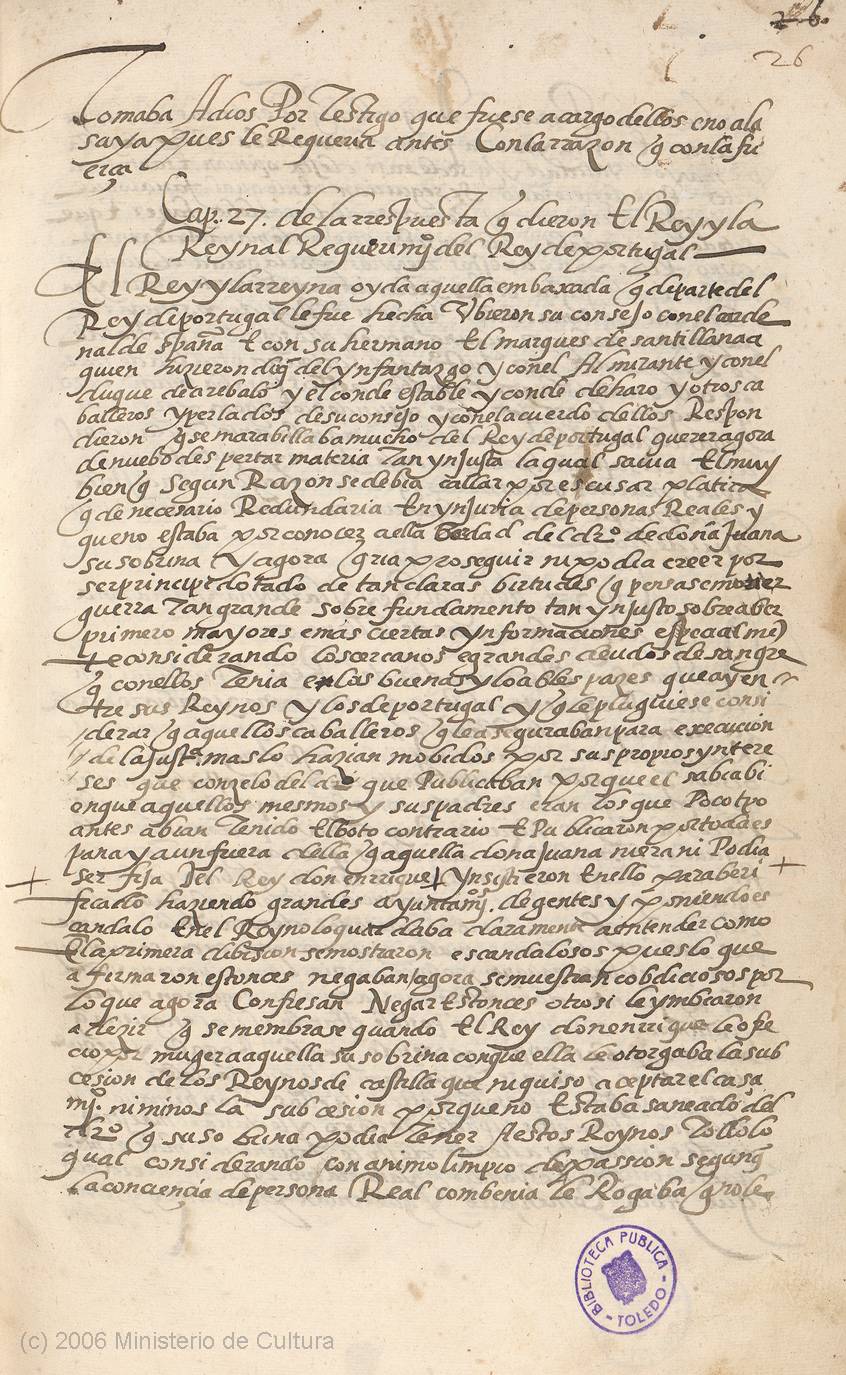 26.
26
Tomaba A dios Por Testigo que fuese a cargo dellos e no ala
saya pues le Requeria antes Con la rrazon q con la fu
erça
Cap. 27. de la rrespuesta q dieron El Rey y la
Reyna al Requerimj del Rey de portugal
El Rey y la rreyna oyda aquella embaxada q de parte del
Rey de portugal le fue hecha Vbieron su consejo con el carde
nal de españa E con su hermano El marques de santillana a
quien hizieron duq del ynfantazgo y con el Almirante y con el
duque de arebalo y el conde estable y conde de haro y otros ca
balleros y perlados de su consejo y con el acuerdo dellos Respon
dieron q se marabillaba mucho del Rey de portugal querer agora
de nuebo despertar materia Tan ynjusta la qual sabia El muy
bien q segun Razon se debia callar por escusar platica
q de necesario Redundaria En ynjuria de personas Reales y
que no estaba por conocer a ella berdad del dro de doña Juana
su sobrina y agora qria proseguir ni podia creer por
ser principe dotado de tan claras birtudes q pensase mober
guerra Tan grande sobre fundamento tan ynjusto sobre aber
primero mayores e mas ciertas ynformaciones especialme
te considerando los cercanos e grandes deudos de sangre
q con ellos Tenia e las buenas y loables pazes que ay en
tre sus Reynos y los de portugal y q le pluguiese consi
derar q aquellos caballeros q le aseguraban para execucion
de la just.ª mas lo hazian mobidos por sus propros yntere
ses que con zelo del dro que Publicaban porque el sabia bi
en que aquellos mesmos y sus padres eran los que Poco tpo
antes abian Tenido El boto contrario E Publicaron por toda es
pana y aun fuera della q aquella dona Juana ni era ni Podia
ser fija Del Rey don enrrique Ynsistieron En ello para beri
ficado haziendo grandes ayuntamjos de gentes y poniendo es
candalo En el Reyno lo qual daba claramente a entender como
En la primera dibision se mostraron escandalosos pues lo que
afirmaron estonces negaban agora se muestran cobdiciosos por
lo que agora Confiesan Negar Estonces otrosi le ymbiaron
a dezir q se membrase quando El Rey don enrrique le ofre
cio por muger a aquella su sobrina con que ella le otorgaba la sub
cesion de los Reynos de castilla que ni quiso aceptar el casa
mjo ni minos la subcesion porque no Estaba saneado del
dro q su sobrina podia Tener A estos Reynos Todo lo
qual considerando con animo limpio de passion segun q
la conciencia de persona Real combenia le Rogaba q no le
BIBLIOTECA PUBLICA - TOLEDO -
(c) 2006 Ministerio de Cultura